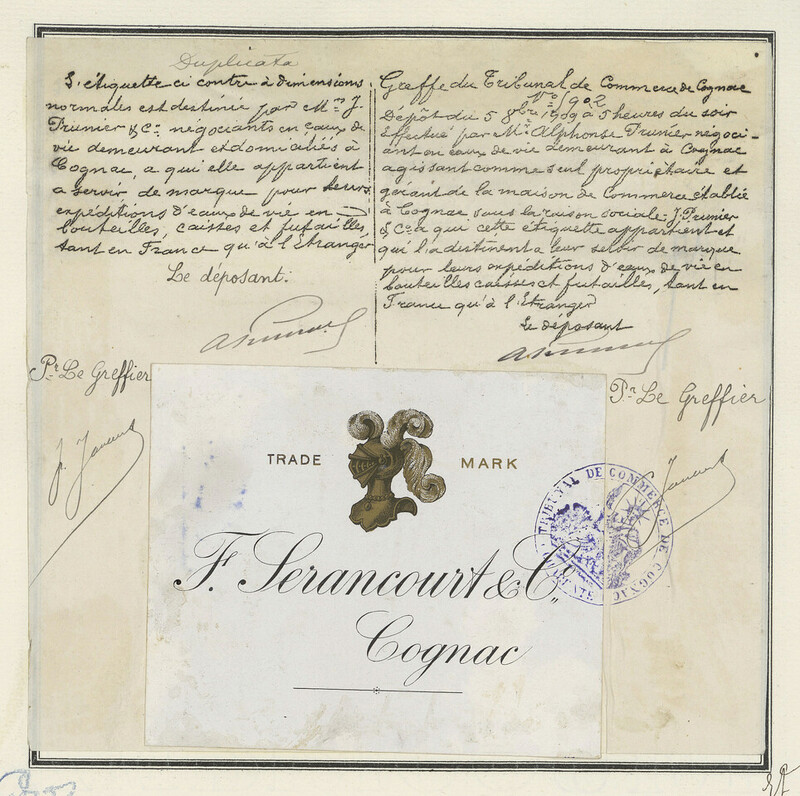 Duplicata
L'étiquette ci contre à dimensions
normales est destinée par Mrs J.
Prunier & Co. négociants en eaux de
vie demeurant et domiciliés à
Cognac, a qui elle appartient
a servir de marque pour leurs
expéditions d'eaux de vie en
bouteilles, caisses et futailles,
tant en France qu'à l'Étranger
Le déposant:
APrunier
Pr Le Greffier
Greffe du Tribunal de Commerce de Cognac
No 1902
Dépôt du 5 8bre 1899 à 5 heures du soir
effectué par Mr Alphonse Prunier négoci-
ant en eaux de vie demeurant à Cognac
agissant comme seul propriétaire et
gérant de la maison de Commerce établie
à Cognac sous la raison sociale J. Prunier
& Co a qui cette étiquette appartient et
qui l'adestinent a leur servir de marque
pour leurs expéditions d'eaux de vie en
bouteilles caisses et futailles, tant en
France qu'à l'Etranger
Le déposant
APrunier
Pr Le Greffier
TRADE MARK
F. Serancourt & Co.
Cognac
TRIBUNAL DE COMMERCE DE COGNAC